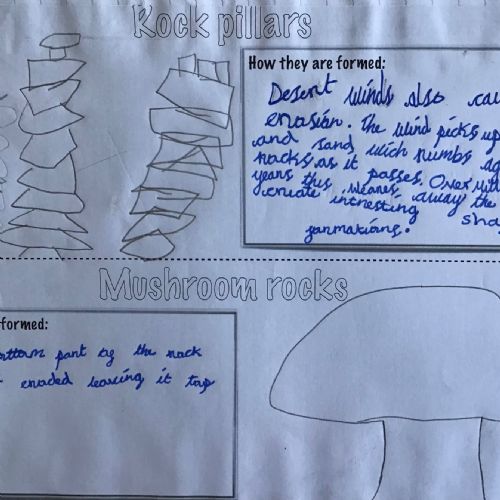 Rock pillars
How they are formed:
Desert winds also cau
erosion. The wind picks up
and sand wich rumbs ag
rocks as it passes. Over
years this weares away the
create intresting sha
formations.
Mushroom rocks
formed:
ottom part of the rock
eroded leaving it top